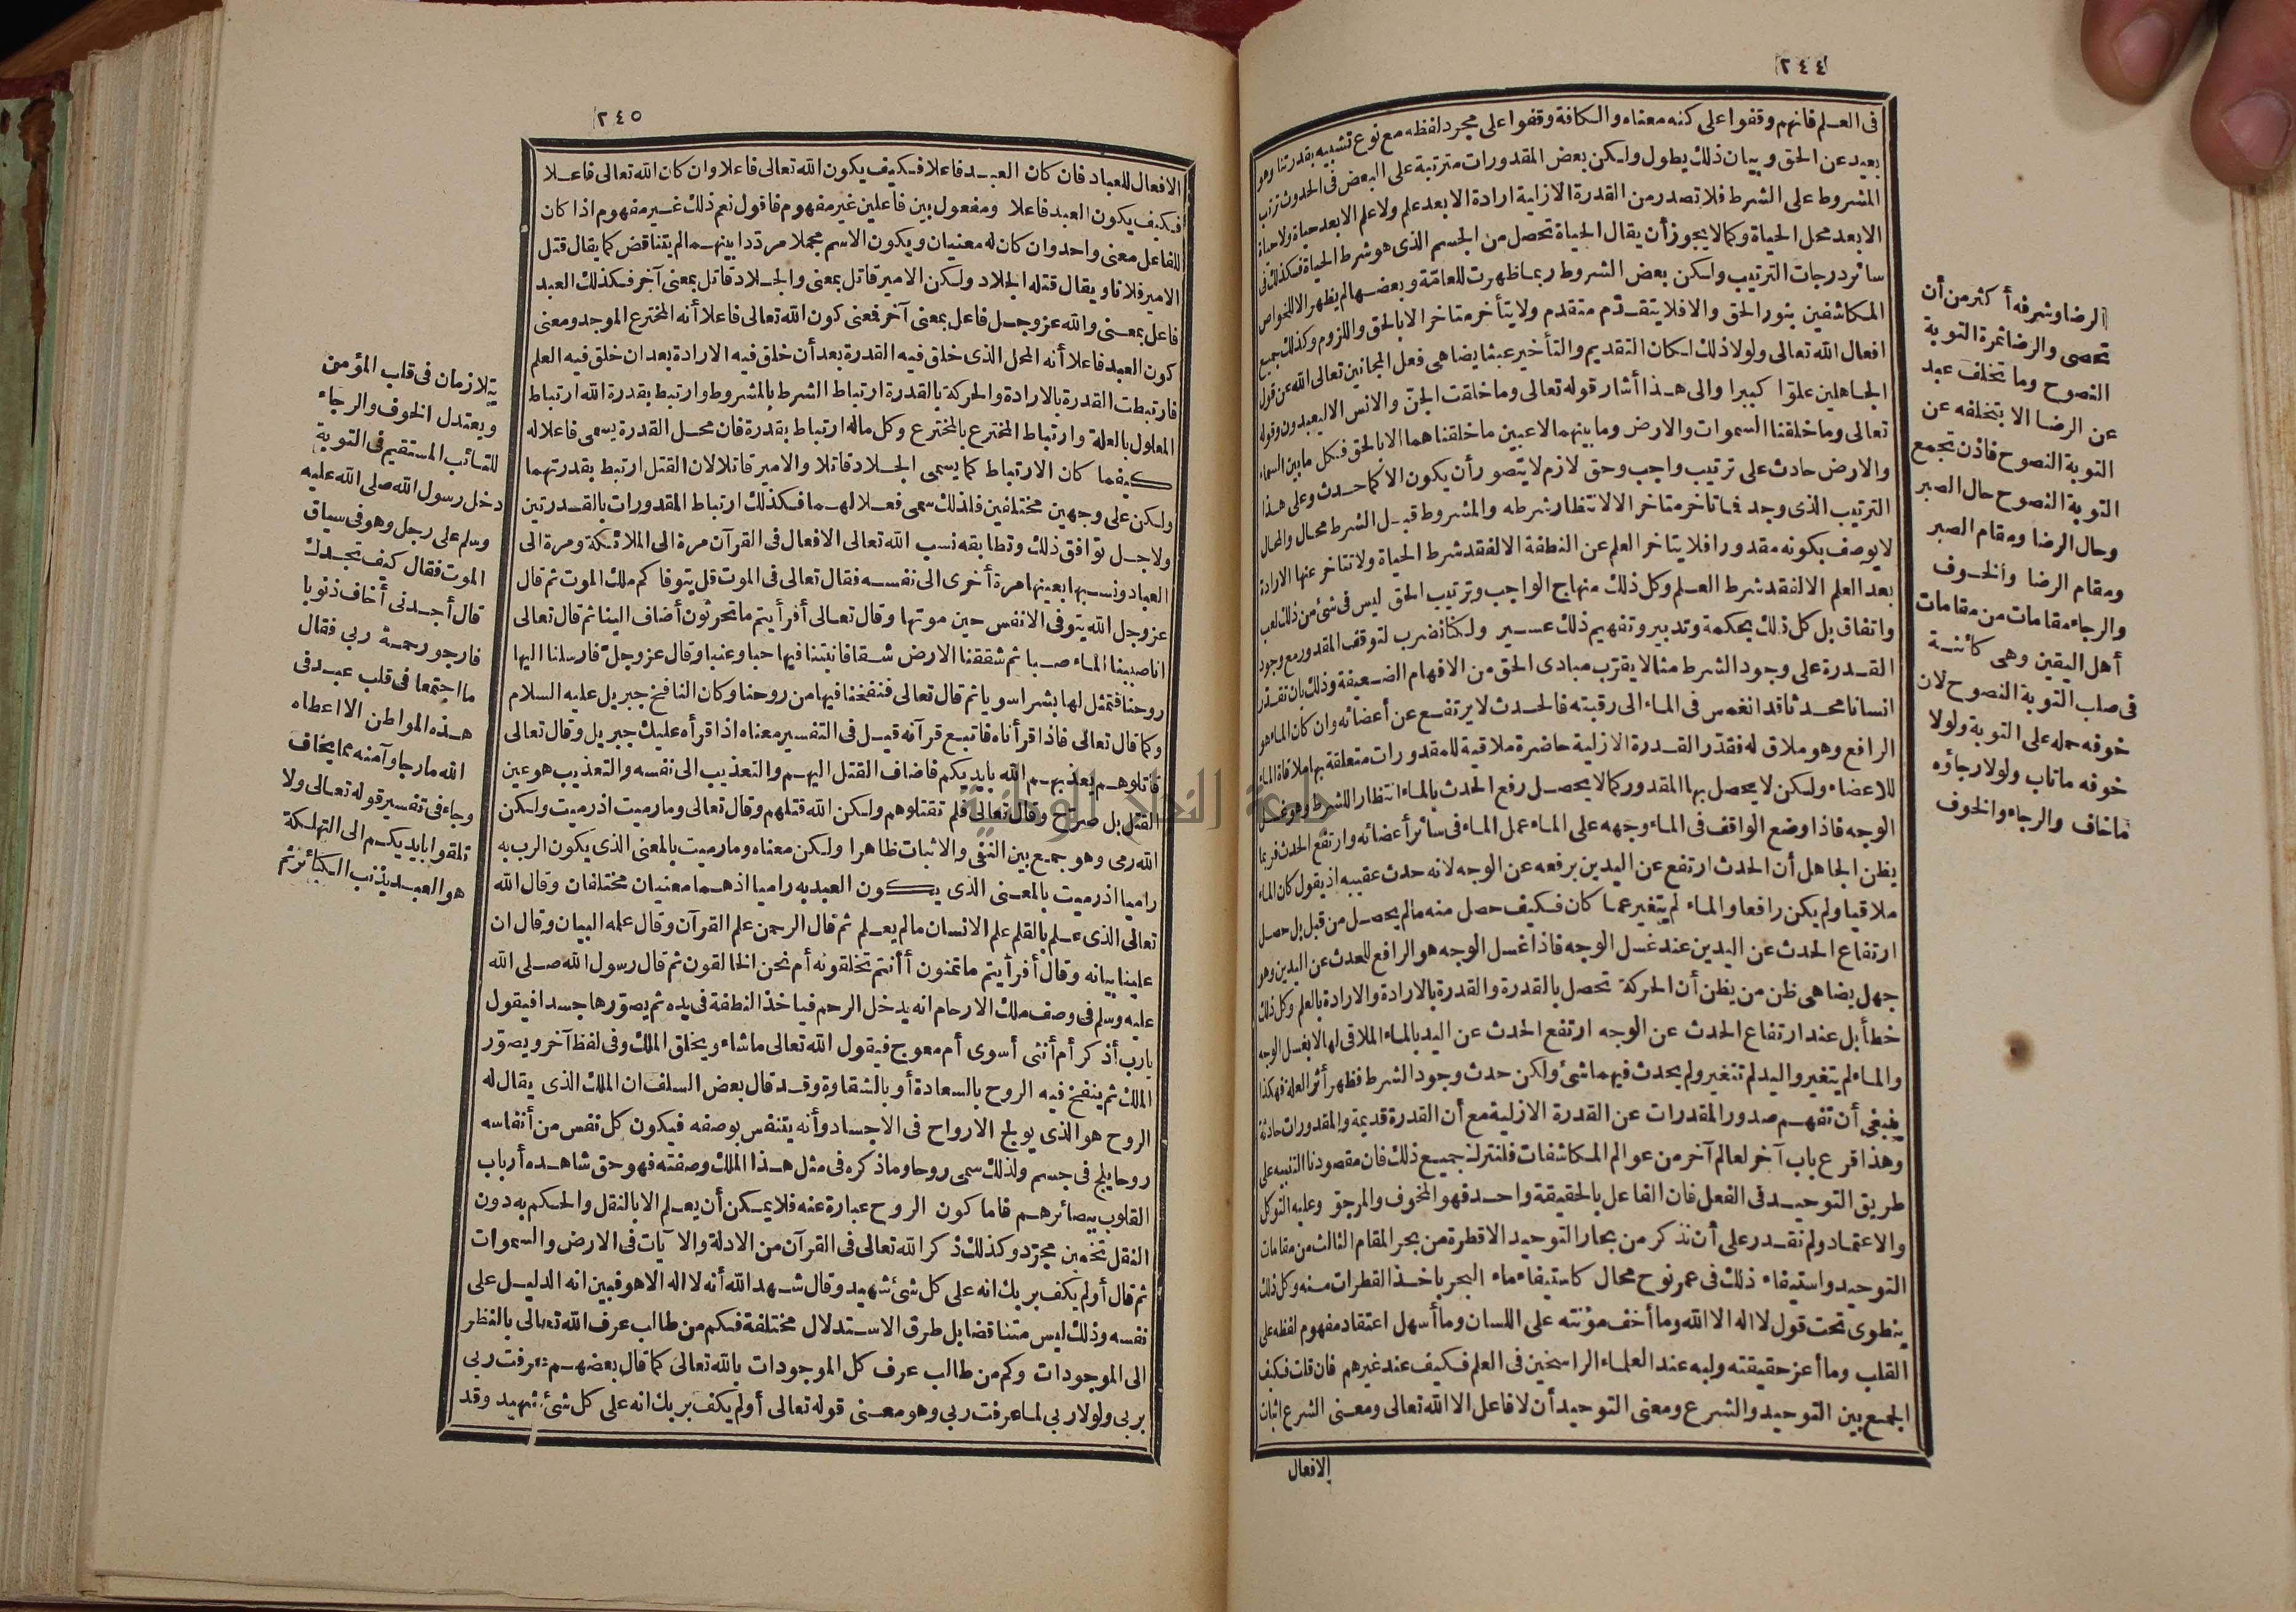 ٢٤٤
فى العلم فانهم وقفوا على كنه معناه والكافة وقفوا على مجرد لفظه مع نوع تشبيه بقدرتنا وهو
بعيد عن الحق وبيان ذلك يطول ولكن بعض المقدورات مترتبة على البعض فى الحدوث ترتب
المشروط على الشرط فلا تصدر من القدرة الازلية ارادة الا بعد علم ولا علم الا بعد حياة ولا حياة
الا بعد محل الحياة وكما لا يجوز أن يقال الحياة تحصل من الجسم الذى هو شرط الحياة فكذلك فى
سائر درجات الترتيب ولكن بعض الشروط ربما ظهرت للعامّة وبعضها لم يظهر الا للخواص
المكاشفين بنور الحق والا فلا يتقدّم متقدم ولا يتأخر متاخر الا بالحق واللزوم وكذلك جميع
افعال الله تعالى ولولا ذلك لكان التقديم والتأخير عبثا يضاهى فعل المجانين تعالى الله عن قول
الجاهلين علوّا كبيرا والى هذا أشار قوله تعالى وما خلقت الجنّ والانس الا ليعبدون وقوله
تعالى وما خلقنا السموات والارض وما بينهما لاعبين ما خلقناهما الا بالحق فكل ما بين السماء
والارض حادث على ترتيب واجب وحق لازم لا يتصور أن يكون الا كما حدث وعلى هذا
الترتيب الذى وجد فما تاخر متاخر الا لانتظار شرطه والمشروط قبل الشرط محال والمحال
لا يوصف بكونه مقدورا فلا يتاخر العلم عن النطفة الا لفقد شرط الحياة ولا تتاخر عنها الارادة
بعد العلم الا لفقد شرط العلم وكل ذلك منهاج الواجب وترتيب الحق ليس فى شئ من ذلك لعب
واتفاق بل كل ذلك بحكمة وتدبير وتفهيم ذلك عسير ولكنا نضرب لتوقف المقدور مع وجود
القدرة على وجود الشرط مثالا يقرّب مبادى الحق من الافهام الضعيفة وذلك بان تقدّر
انسانا محدثا قد انغمس فى الماء الى رقبته فالحدث لا يرتفع عن أعضائه وان كان الماء هو
الرافع وهو ملاق له فقدّر القدرة الازلية حاضرة ملاقية للمقدورات متعلقة بها ملاقاة الماء
للاعضاء ولكن لا يحصل بها المقدور كما لا يحصل رفع الحدث بالماء انتظارا للشرط وهو غسل
الوجه فاذا وضع الواقف فى الماء وجهه على الماء عمل الماء فى سائر أعضائه وارتفع الحدث فربما
يظن الجاهل أن الحدث ارتفع عن اليدين برفعه عن الوجه لانه حدث عقيبه اذ يقول كان الماء
ملاقيا ولم يكن رافعا والماء لم يتغير عما كان فكيف حصل منه ما لم يحصل من قبل بل حصل
ارتفاع الحدث عن اليدين عند غسل الوجه فاذا غسل الوجه هو الرافع للحدث عن اليدين وهو
جهل يضاهى ظن من يظن أن الحركة تحصل بالقدرة والقدرة بالارادة والارادة بالعلم وكل ذلك
خطأ بل عند ارتفاع الحدث عن الوجه ارتفع الحدث عن اليد بالماء الملاقى لها لا بغسل الوجه
والماء لم يتغير واليد لم تتغير ولم يحدث فيهما شئ ولكن حدث وجود الشرط فظهر أثر العلة فهكذا
ينبغى أن تفهم صدور المقدرات عن القدرة الازلية مع أن القدرة قديمة والمقدورات حادثة
وهذا قرع باب آخر لعالم آخر من عوالم المكاشفات فلنترك جميع ذلك فان مقصودنا التنبيه على
طريق التوحيد فى الفعل فان الفاعل بالحقيقة واحد فهو المخوف والمرجوّ وعليه التوكل
والاعتماد ولم نقدر على أن نذكر من بحار التوحيد الا قطرة من بحر المقام الثالث من مقامات
التوحيد واستيفاء ذلك فى عمر نوح محال كاستيفاء ماء البحر باخذ القطرات منه وكل ذلك
ينطوى تحت قول لا اله الا الله وما أخف مؤنته على اللسان وما أسهل اعتقاد مفهوم لفظه على
القلب وما أعز حقيقته ولبه عند العلماء الراسخين فى العلم فكيف عند غيرهم فان قلت فكيف
الجمع بين التوحيد والشرع ومعنى التوحيد أن لا فاعل الا الله تعالى ومعنى الشرع اثبات
الافعال
الرضا وشرفه أكثر من أن
تحصى والرضا ثمرة التوبة
النصوح وما تخلف عبد
عن الرضا الا بتخلفه عن
التوبة النصوح فاذن تجمع
التوبة النصوح حال الصبر
وحال الرضا ومقام الصبر
ومقام الرضا والخوف
والرجاء مقامات من مقامات
أهل اليقين وهى كائنة
فى صلب التوبة النصوح لان
خوفه حمله على التوبة ولولا
خوفه ما تاب ولولا رجاؤه
ما خاف والرجاء والخوف
٢٤٥
الافعال للعباد فان كان العبد فاعلا فكيف يكون الله تعالى فاعلا وان كان الله تعالى فاعلا
فكيف يكون العبد فاعلا ومفعول بين فاعلين غير مفهوم فاقول نعم ذلك غير مفهوم اذا كان
للفاعل معنى واحد وان كان له معنيان ويكون الاسم مجملا مردّدا بينهما لم يتناقض كما يقال قتل
الامير فلانا ويقال قتله الجلاد ولكن الامير قاتل بمعنى والجلاد قاتل بمعنى آخر فكذلك العبد
فاعل بمعنى والله عز وجل فاعل بمعنى آخر فمعنى كون الله تعالى فاعلا أنه المخترع الموجد ومعنى
كون العبد فاعلا أنه المحل الذى خلق فيه القدرة بعد أن خلق فيه الارادة بعد ان خلق فيه العلم
فارتبطت القدرة بالارادة والحركة بالقدرة ارتباط الشرط بالمشروط وارتبط بقدرة الله ارتباط
المعلول بالعلة وارتباط المخترع بالمخترع وكل ماله ارتباط بقدرة فان محل القدرة يسمى فاعلا له
كيفما كان الارتباط كما يسمى الجلاد قاتلا والامير قاتلا لان القتل ارتبط بقدرتهما
ولكن على وجهين مختلفين فلذلك سمى فعلا لهما فكذلك ارتباط المقدورات بالقدرتين
ولاجل توافق ذلك وتطابقه نسب الله تعالى الافعال فى القرآن مرة الى الملائكة ومرة الى
العباد ونسبها بعينها مرة أخرى الى نفسه فقال تعالى فى الموت قل يتوفاكم ملك الموت ثم قال
عز وجل الله يتوفى الانفس حين موتها وقال تعالى أفرأيتم ما تحرثون أضاف الينا ثم قال تعالى
انا صببنا الماء صبا ثم شققنا الارض شقا فانبتنا فيها حبا وعنبا وقال عز وجلّ فارسلنا اليها
روحنا فتمثل لها بشرا سويا ثم قال تعالى فنفخنا فيها من روحنا وكان النافخ جبريل عليه السلام
وكما قال تعالى فاذا قرأناه فاتبع قرآنه قيل فى التفسير معناه اذا قرأه عليك جبريل وقال تعالى
قاتلوهم يعذبهم الله بايديكم فاضاف القتل اليهم والتعذيب الى نفسه والتعذيب هو عين
القتل بل صرّح وقال تعالى فلم تقتلوهم ولكن الله قتلهم وقال تعالى وما رميت اذ رميت ولكن
الله رمى وهو جمع بين النفى والاثبات ظاهرا ولكن معناه وما رميت بالمعنى الذى يكون الرب به
راميا اذ رميت بالمعنى الذى يكون العبد به راميا اذ هما معنيان مختلفان وقال الله
تعالى الذى علم بالقلم علم الانسان ما لم يعلم ثم قال الرحمن علم القرآن وقال علمه البيان وقال ان
علينا بيانه وقال أفرأيتم ما تمنون أأنتم تخلقونه أم نحن الخالقون ثم قال رسول الله صلى الله
عليه وسلم فى وصف ملك الارحام انه يدخل الرحم فياخذ النطفة فى يده ثم يصوّرها جسدا فيقول
يا رب أذكر أم أنثى أسوى أم معوج فيقول الله تعالى ما شاء ويخلق الملك وفى لفظ آخر ويصوّر
الملك ثم ينفخ فيه الروح بالسعادة أو بالشقاوة وقد قال بعض السلف ان الملك الذى يقال له
الروح هو الذى يولج الارواح فى الاجساد وأنه يتنفس بوصفه فيكون كل نفس من أنفاسه
روحا يلج فى جسم ولذلك سمى روحا وما ذكره فى مثل هذا الملك وصفته فهو حق شاهده أرباب
القلوب ببصائرهم فاما كون الروح عبارة عنه فلا يمكن أن يعلم الا بالنقل والحكم به دون
النقل تخمين مجرّد وكذلك ذكر الله تعالى فى القرآن من الادلة والآيات فى الارض والسموات
ثم قال أولم يكف بربك انه على كل شئ شهيد وقال شهد الله أنه لا اله الا هو فبين انه الدليل على
نفسه وذلك ليس متناقضا بل طرق الاستدلال مختلفة فكم من طالب عرف الله تعالى بالنظر
الى الموجودات وكم من طالب عرف كل الموجودات بالله تعالى كما قال بعضهم عرفت ربى
بربى ولولا ربى لما عرفت ربى وهو معنى قوله تعالى أولم يكف بربك انه على كل شئ شهيد وقد
يتلازمان فى قلب المؤمن
ويعتدل الخوف والرجاء
للتائب المستقيم فى التوبة
دخل رسول الله صلى الله عليه
وسلم على رجل وهو فى سياق
الموت فقال كيف تجدك
قال أجدنى أخاف ذنوبا
فارجو رحمة ربى فقال
ما اجتمعا فى قلب عبد فى
هذه المواطن الا اعطاه
الله ما رجا وآمنه مما يخاف
وجاء فى تفسير قوله تعالى ولا
تلقوا بايديكم الى التهلكة
هو العبد يذنب الكبائر ثم